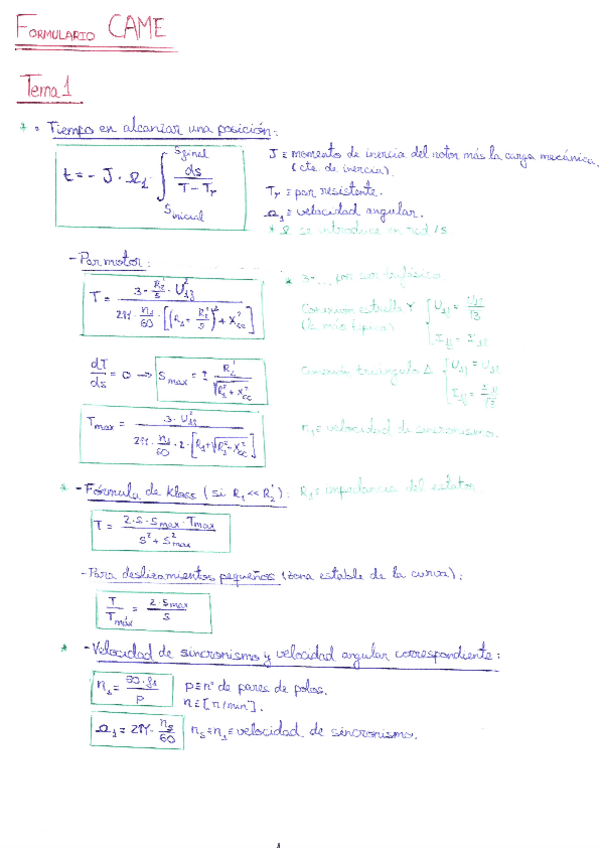 FORMULARIO CAME
Tema 1
* • Tiempo en alcanzar una posición:
t = - J · Ω₁ · ∫ (S inicial → S final) ds / (T - Tr)
J ≡ momento de inercia del rotor más la carga mecánica.
(cte. de inercia).
Tr ≡ par resistente.
Ω₁ ≡ velocidad angular.
* Ω se introduce en rad/s.
- Par motor:
T = (3 · R₂'/s · U₁f²) / (2π · n₁/60 · [(R₁ + R₂'/s)² + Xcc²])
* 3 · ... por ser trifásico.
Conexión estrella Y
(la más típica)
dT/ds = 0 → S max = ± R₂' / √(R₁² + Xcc²)
Conexión triángulo Δ
T max = (3 · U₁f²) / (2π · n₁/60 · 2 · [R₁ + √(R₁² - Xcc²)])
n₁ ≡ velocidad de sincronismo.
* - Fórmula de Kloss (si R₁ << R₂'): R₁ ≡ impedancia del estator.
T = (2 · S · S max · T max) / (S² + S² max)
- Para deslizamientos pequeños (zona estable de la curva):
T / T máx = (2 · S max) / S
* - Velocidad de sincronismo y velocidad angular correspondiente:
p ≡ nº de pares de polos.
n ≡ [r/min].
Ω₁ = 2π · ns/60
ns ≡ n₁ ≡ velocidad de sincronismo.